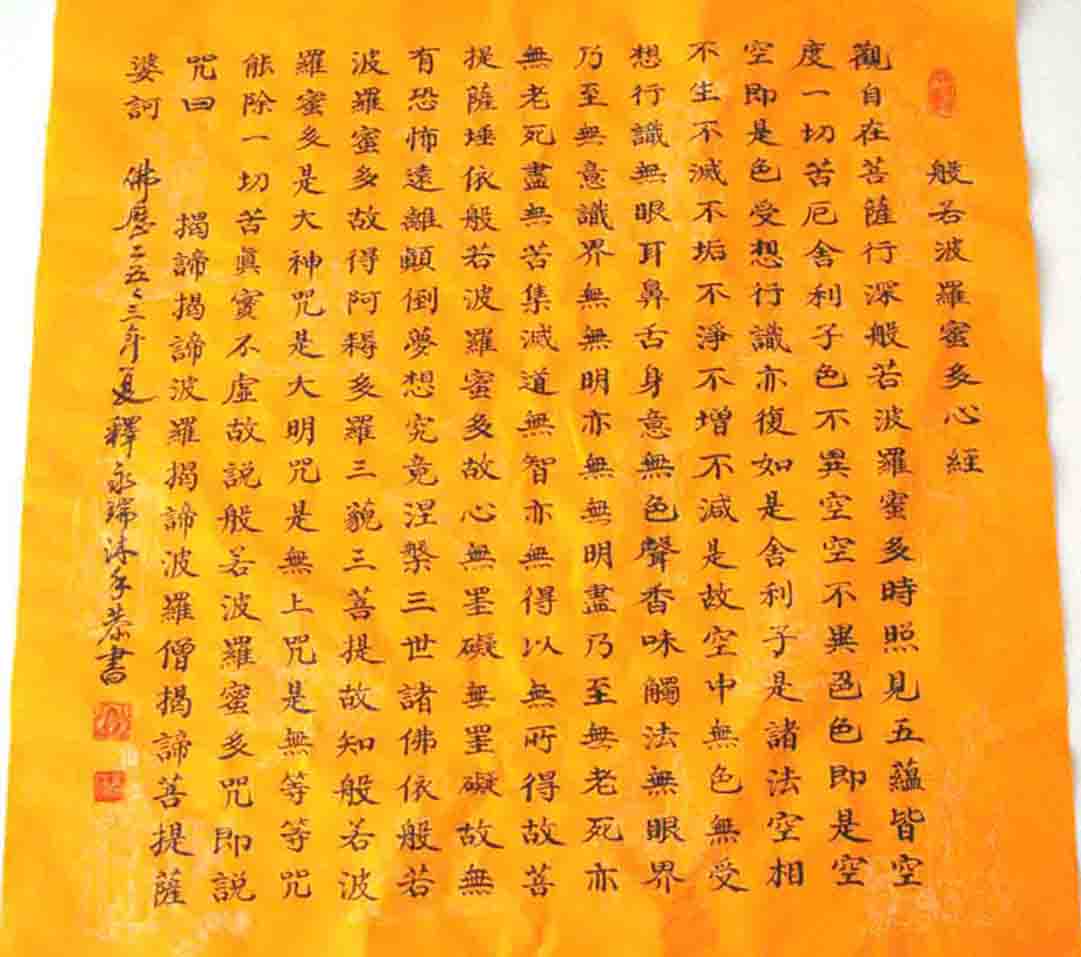 般若波羅蜜多心經
觀自在菩薩行深般若波羅蜜多時照見五蘊皆空
度一切苦厄舍利子色不異空空不異色色即是空
空即是色受想行識亦復如是舍利子是諸法空相
不生不滅不垢不淨不增不減是故空中無色無受
想行識無眼耳鼻舌身意無色聲香味觸法無眼界
乃至無意識界無無明亦無無明盡乃至無老死亦
無老死盡無苦集滅道無智亦無得以無所得故菩
提薩埵依般若波羅蜜多故心無罣礙無罣礙故無
有恐怖遠離顛倒夢想究竟涅槃三世諸佛依般若
波羅蜜多故得阿耨多羅三藐三菩提故知般若波
羅蜜多是大神咒是大明咒是無上咒是無等等咒
能除一切苦眞實不虛故説般若波羅蜜多咒即説
咒曰 揭諦揭諦波羅揭諦波羅僧揭諦菩提薩
婆訶 佛曆二五〻三年夏釋永瑞沐手恭書